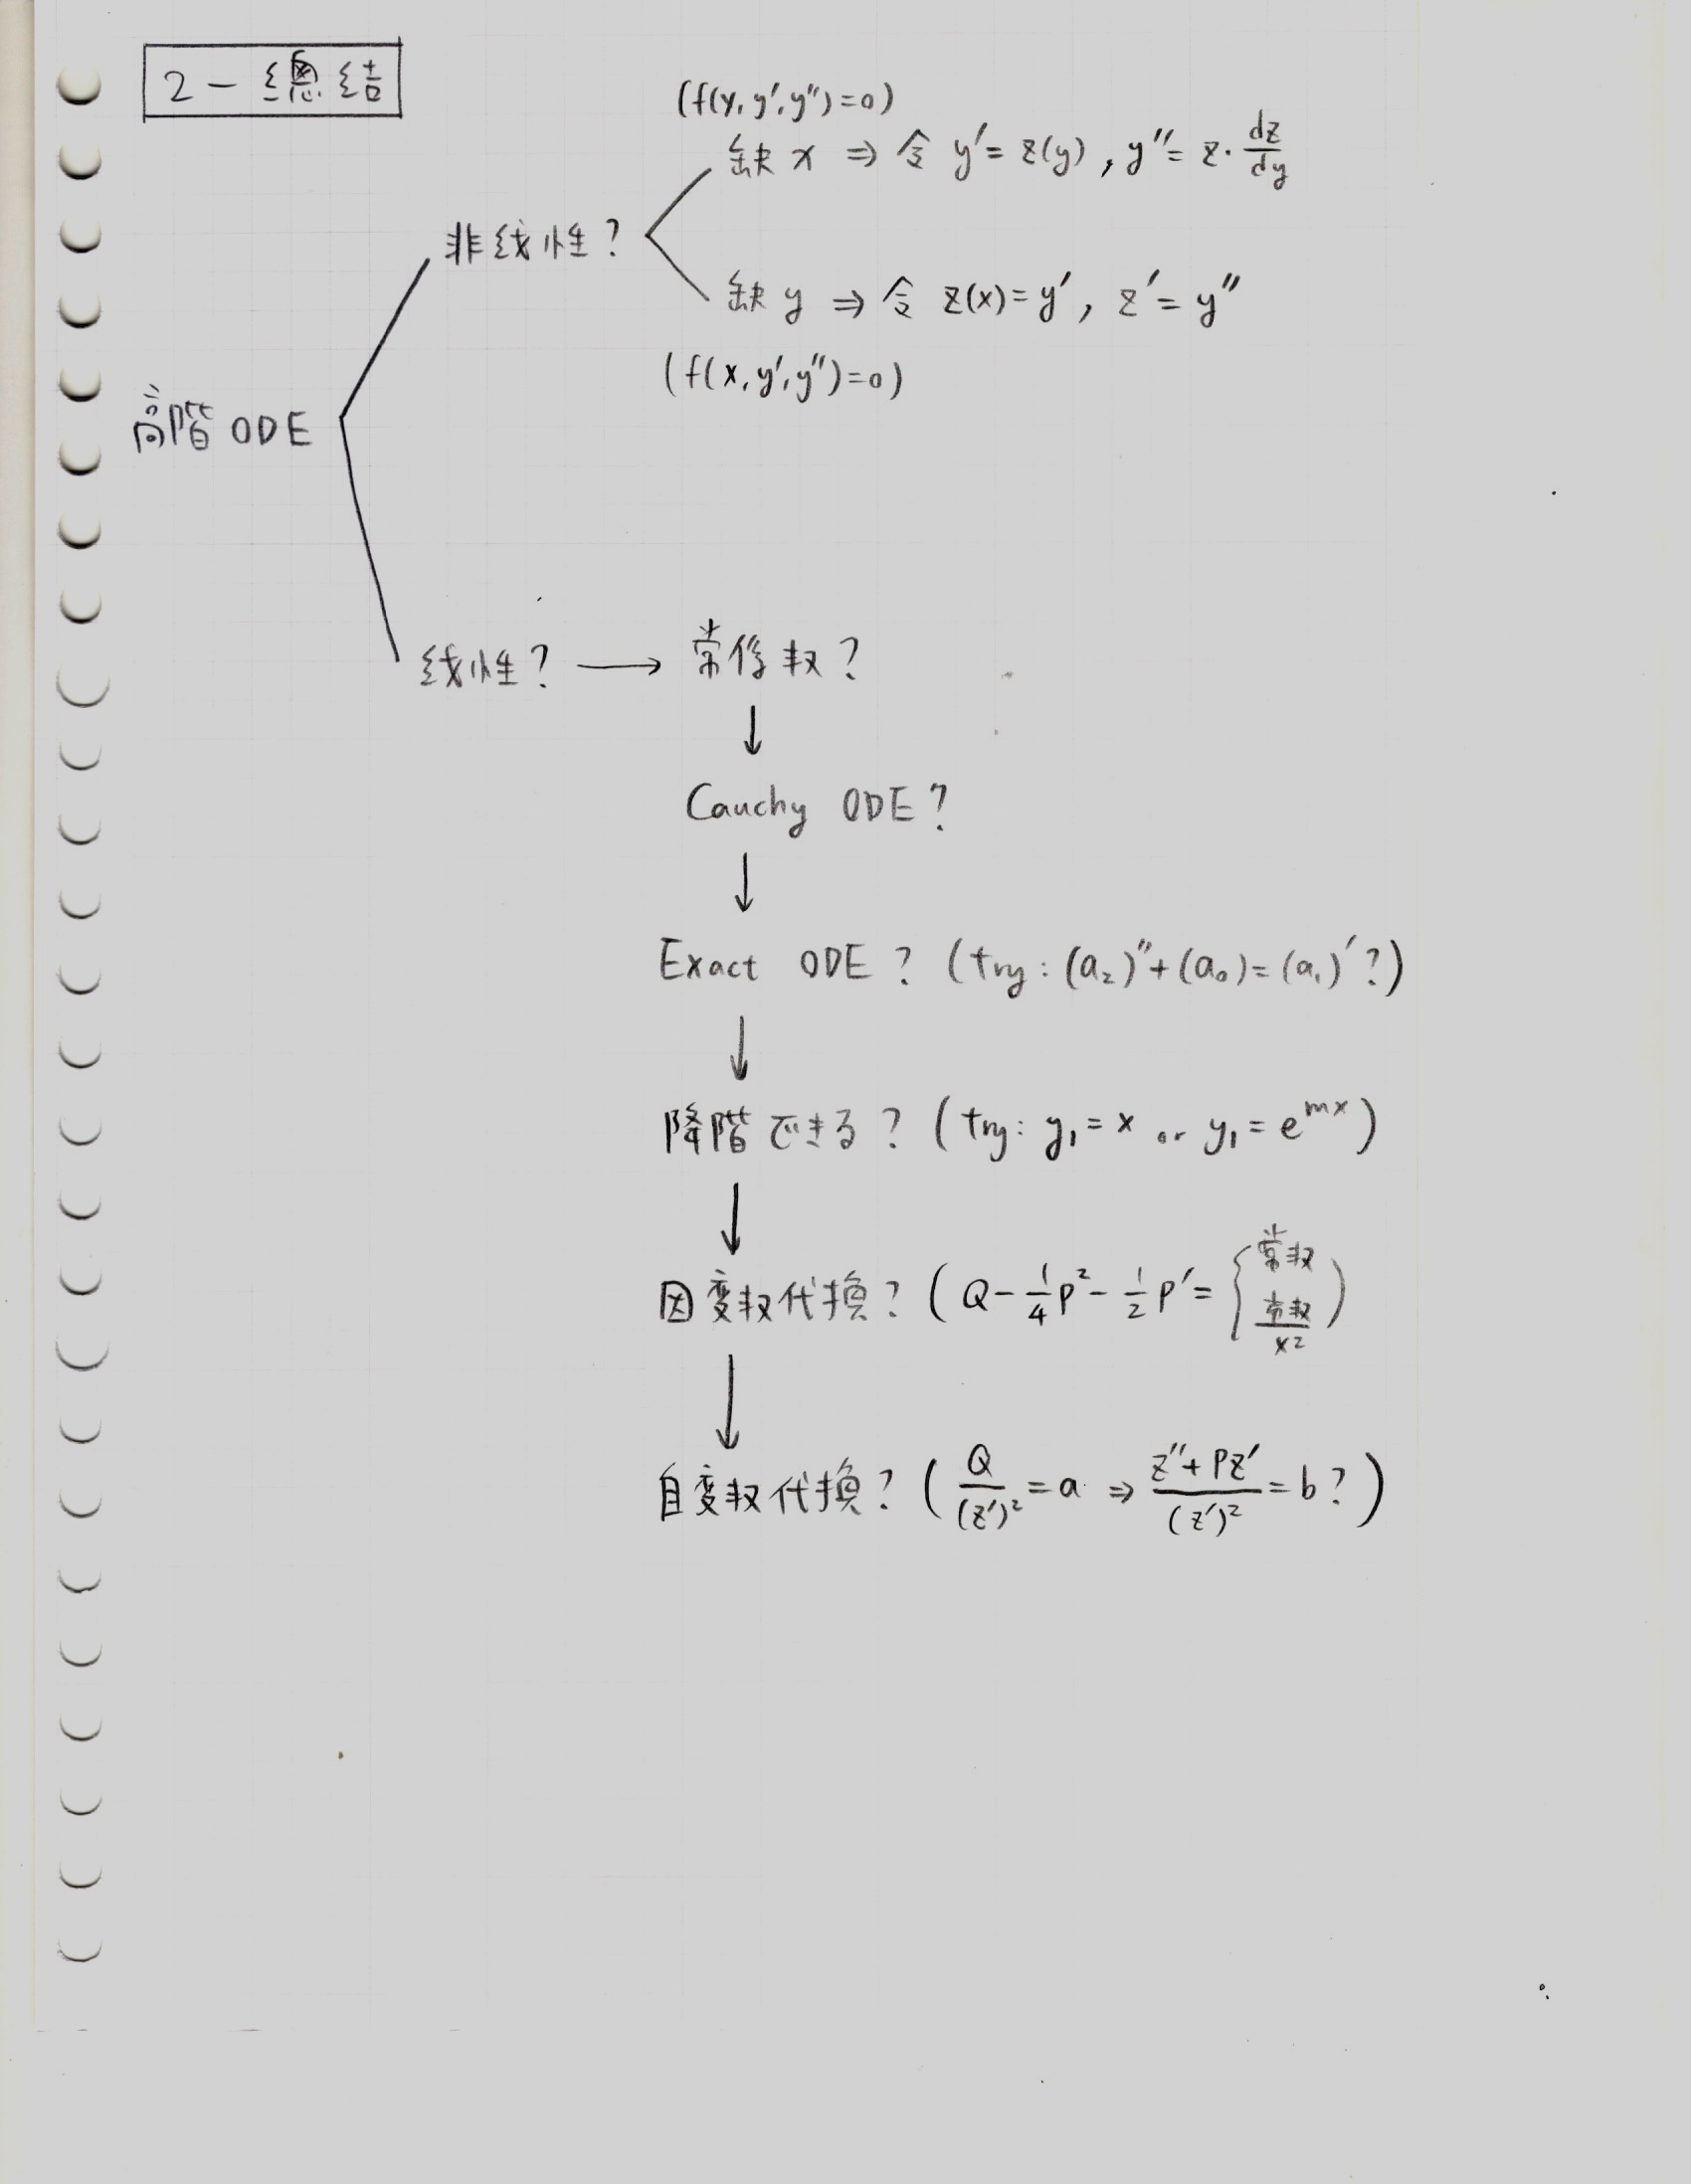 2-總結
(f(y, y', y'')=0)
缺 x ⇒ 令 y' = z(y), y'' = z · dz/dy
非线性?
缺 y ⇒ 令 z(x) = y', z' = y''
(f(x, y', y'')=0)
高階 ODE
线性? → 常係数?
↓
Cauchy ODE?
↓
Exact ODE? (try: (a₂)'' + (a₀) = (a₁)'?)
↓
降階できる? (try: y₁ = x or y₁ = e^{mx})
↓
因变数代換? (Q - 1/4 P² - 1/2 P' = { 常数
常数/x² )
↓
自变数代換? (Q/(z')² = a ⇒ (z'' + Pz')/(z')² = b?)